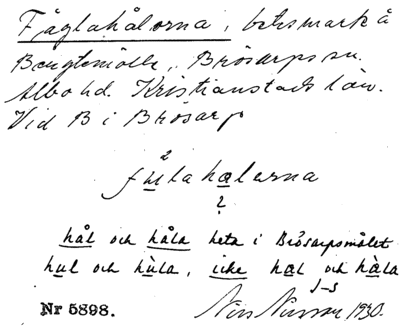 Fåglahålorna, betesmark å
Bengtemölla, Brösarps sn.
Albo hd. Kristianstads län.
Vid B i Brösarp
2
fulahælarna
?
hål och håla heta i Brösarpsmålet
hul och hùla, icke hæl och hæ̀la
Nils Nilsson 1930.
Nr 5898.